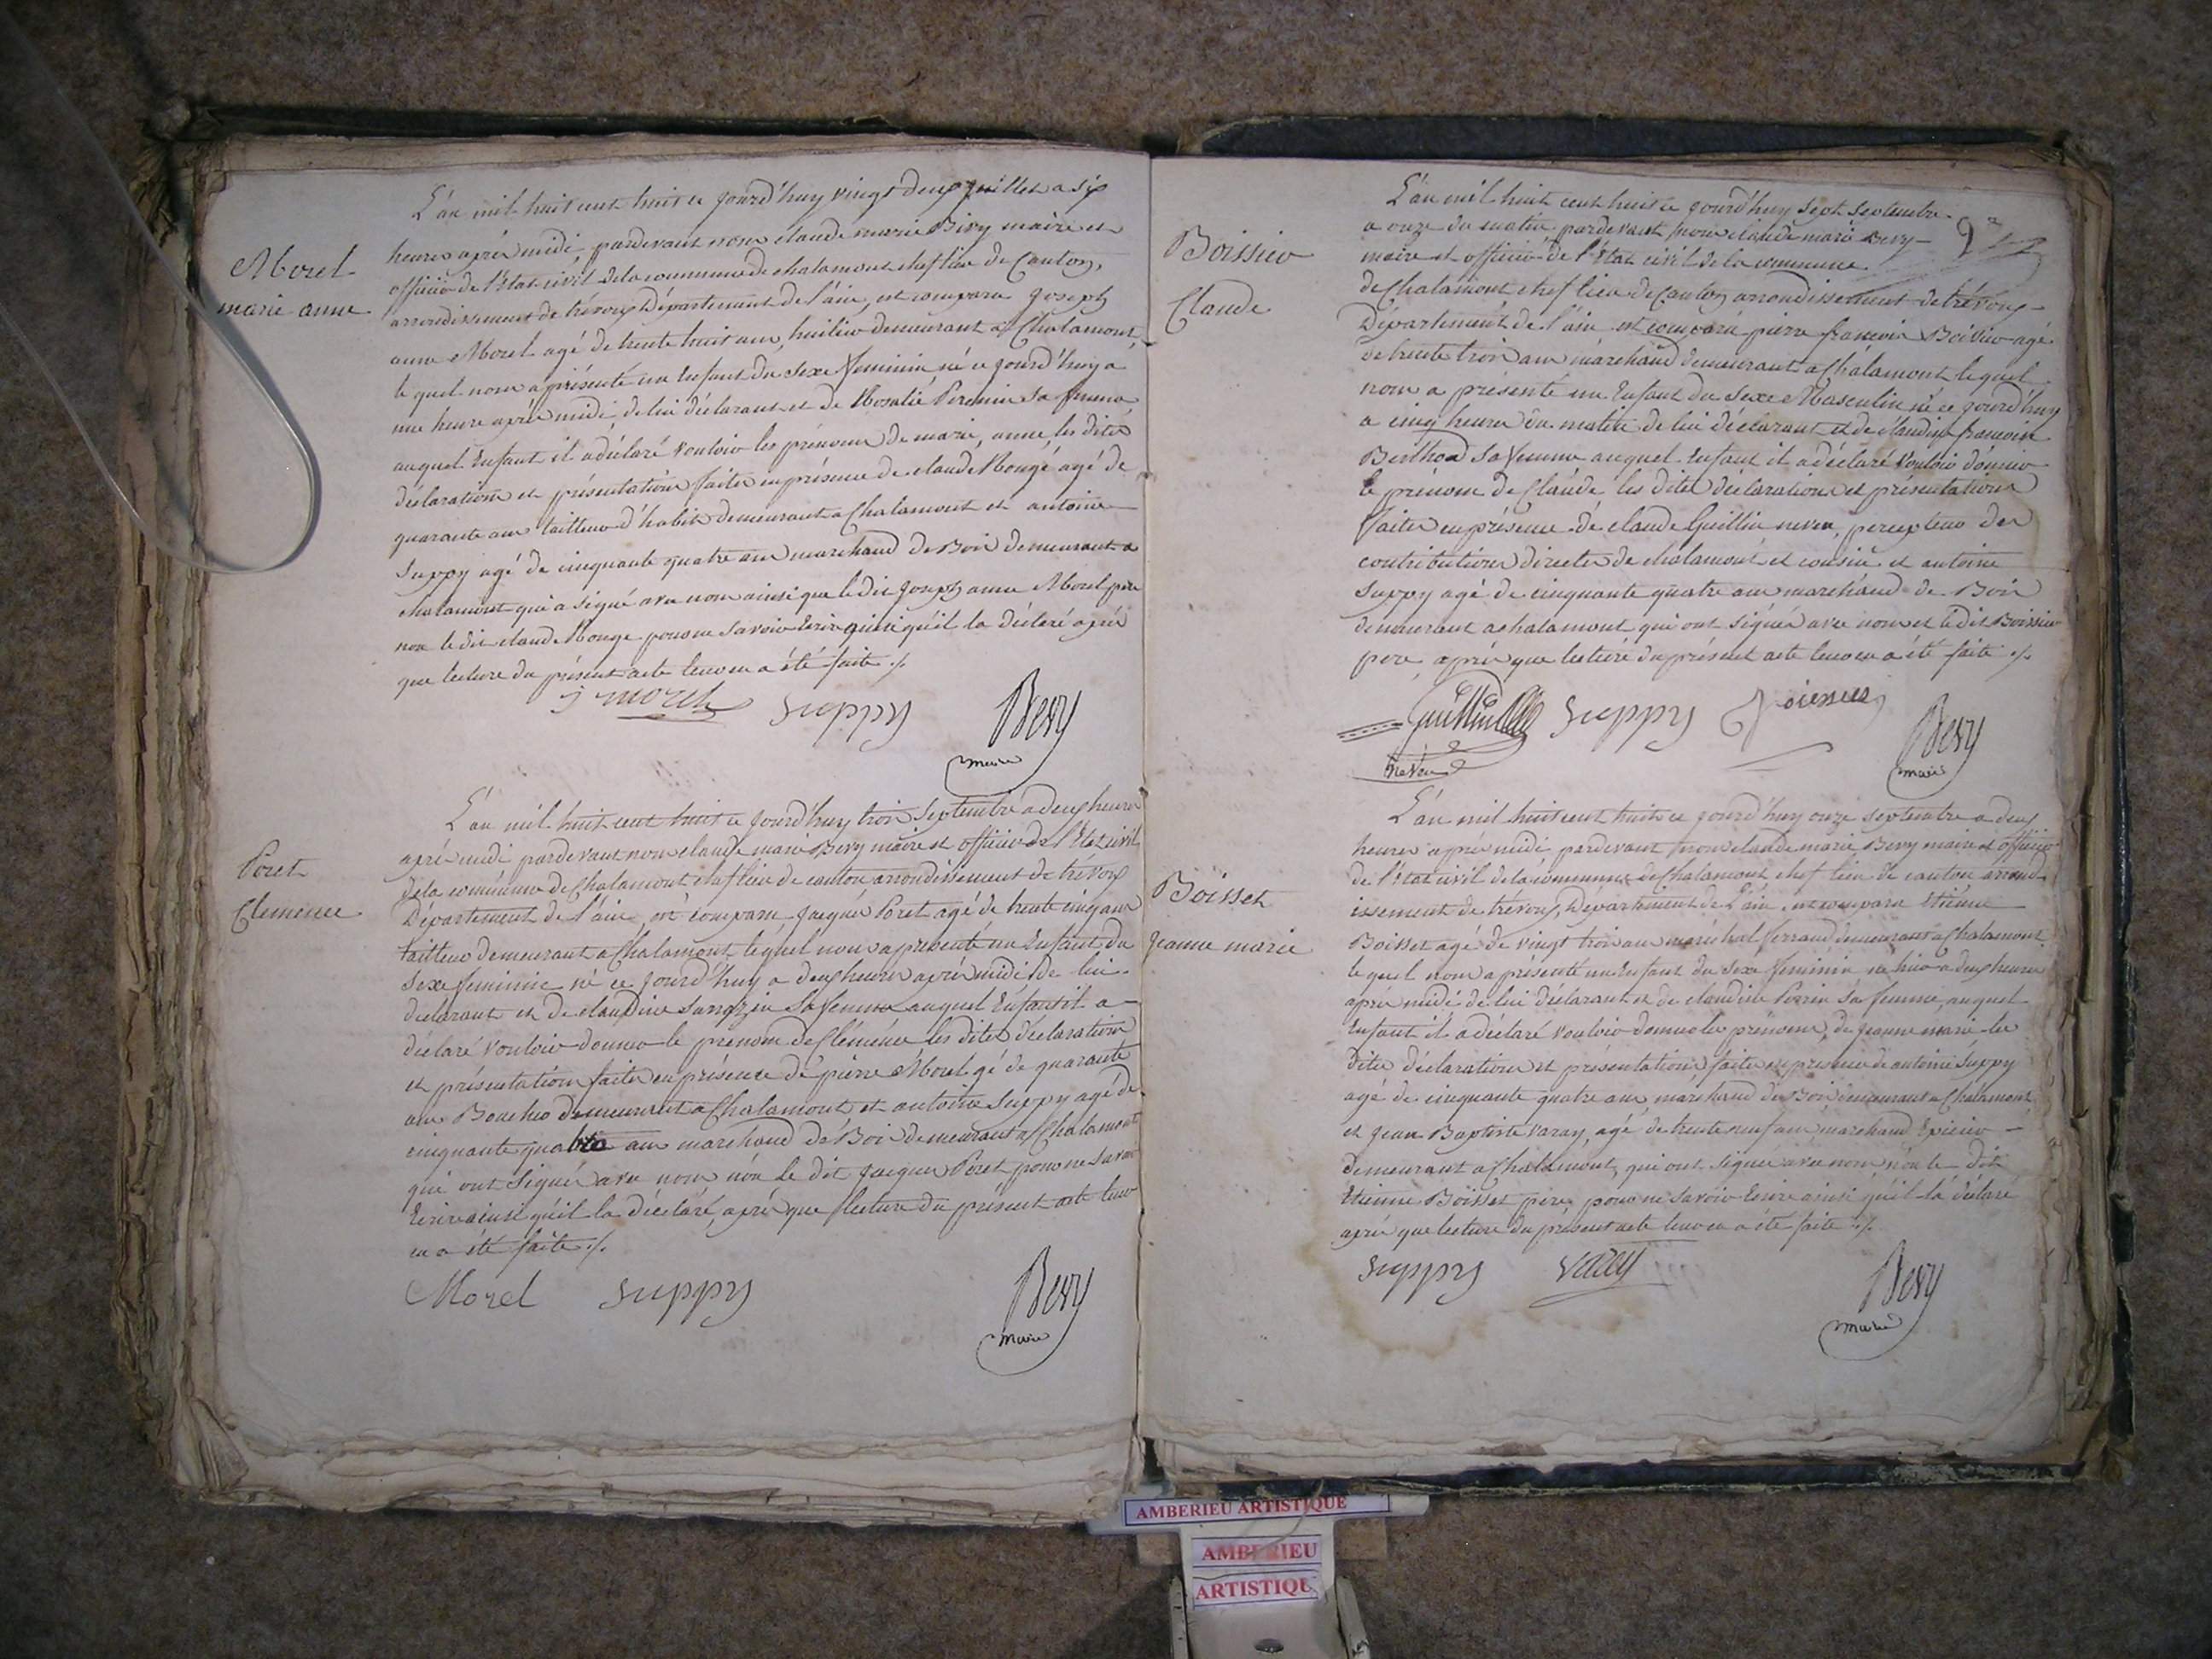 Morel
marie anne
L'an mil huit cent huit ce jourd'huy vingt deux juillet a six
heures après midi, pardevant nous claude marie Bevy maire et
officier de l'état civil de la commune de chalamont chef lieu de Canton,
arrondissement de trévoux Département de l'ain, est comparu Joseph
anne Morel agé de trente huit ans, huilier demeurant à Chalamont,
le quel nous a présenté un Enfant du Sexe feminin né ce jourd'huy a
une heure après midi, de lui déclarant et de Rosalie Perenin sa femme
auquel Enfant il a déclaré vouloir les prénoms de marie, anne, les dites
déclaration et présentation faites en présence de claude Rougé agé de
quarante ans tailleur d'habits demeurant a Chalamont et antoine
Suppy agé de cinquante quatre ans marchand de Bois demeurant a
chalamont qui a signé avec nous ainsi que le dit Joseph anne Morel père
non le dit claude Rouge pour ne savoir Ecrire ainsi qu'il la déclaré après
que lecture du présent acte leur en a été faite ./.
j morel Suppy Bevy
maire
Poret
Clemence
L'an mil huit cent huit ce jourd'huy trois Septembre a deux heures
après midi pardevant nous claude marie Bevy maire et officier de l'Etat civil
de la commune de Chalamont chef lieu de canton arrondissement de trévoux
Département de l'ain, est comparu Jacques Poret agé de trente cinq ans
tailleur demeurant a Chalamont lequel nous a présenté un Enfant du
Sexe feminin né ce jourd'huy a deux heures après midi de lui
déclarant et de claudine sa femme auquel Enfant il a
déclaré vouloir donner le prénom de Clémence les dites déclaration
et présentation faites en présence de pierre Morel gé de quarante
ans Boucher demeurant a Chalamont et antoine Suppy agé de
cinquante quatre ans marchand de Bois demeurant a Chalamont
qui ont Signé avec nous non le dit Jacques Poret, pour ne savoir
Ecrire ainsi qu'il la déclaré, après que lecture du présent acte leur
en a été faite ./.
Morel Suppy Bevy
maire
Boissieu
Claude
L'an mil huit cent huit ce jourd'huy Sept Septembre
a onze du matin pardevant nous claude marie Bevy
maire et officier de l'état civil de la commune
de Chalamont chef lieu de Canton arrondissement de trévoux
Département de l'ain est comparu pierre francois Boissieu agé
de trente trois ans marchand demeurant a Chalamont lequel
nous a présenté un Enfant du Sexe Masculin né ce jourd'huy
a cinq heures du matin de lui déclarant et de claudine francoise
Berthod sa femme auquel Enfant il a déclaré vouloir donner
le prénom de Claude, les dites déclaration et présentation
faites en présence de claude Guillin neveu, percepteur des
contributions directes de chalamont et cousin et antoine
Suppy agé de cinquante quatre ans marchand de Bois
demeurant a chalamont qui ont signés avec nous et le dit Boissieu
père, après que lecture du présent acte leur en a été faite ./.
Guillin Suppy Boissieu Bevy
neveu maire
Boisset
Jeanne marie
L'an mil huit cent huit ce jourd'huy onze septembre a deux
heures après midi pardevant nous claude marie Bevy maire et officier
de l'état civil de la commune de Chalamont chef lieu de canton arrond
issement de trévoux, Département de l'ain, est comparu Etienne
Boisset agé de vingt trois ans maréchal ferrand demeurant a Chalamont
lequel nous a présenté un Enfant du sexe feminin né hier a deux heures
après midi de lui déclarant et de claudine Perrin sa femme, auquel
Enfant il a déclaré vouloir donner les prénoms, de Jeanne marie les
dites déclaration et présentation faites en présence de antoine Suppy
agé de cinquante quatre ans, marchand de Bois demeurant a Chalamont
et Jean Baptiste Varay, agé de trente neuf ans, marchand Epicier
demeurant a Chalamont, qui ont signé avec nous non le dit
Etienne Boisset père, pour ne Savoir Ecrire ainsi qu'il la déclaré
après que lecture du présent acte leur en a été faite ./.
Suppy Varay Bevy
maire
AMBERIEU ARTISTIQUE
AMBERIEU
ARTISTIQUE